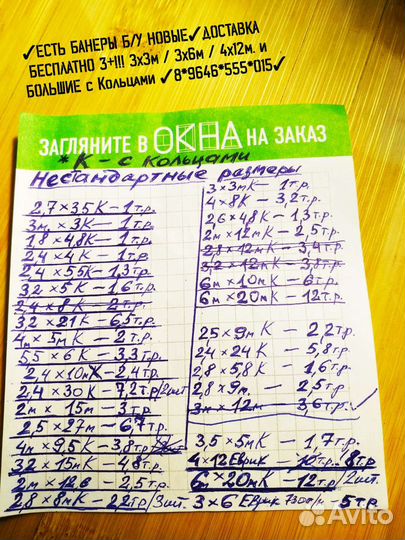 ✓ЕСТЬ БАНЕРЫ Б/У НОВЫЕ✓ДОСТАВКА
БЕСПЛАТНО 3+!!! 3х3м / 3х6м / 4х12м. и
БОЛЬШИЕ с Кольцами ✓8*9646*555*015✓
ЗАГЛЯНИТЕ В ОКНА НА ЗАКАЗ
*К - с кольцами
Нестандартные размеры
2,7×3,5К – 1т.р.
3м×3К – 1т.р.
1,8×4,8К – 1т.р.
2,4×4К – 1т.р.
2,4×5,5К – 1,3т.р.
3,2×5К – 1,6т.р.
2,4×8К – 2т.р.
3,2×21К – 6,5т.р.
4м×5мК – 2т.р.
5,5×6К – 3,3т.р.
2,4×10мК – 2,4т.р.
2,4×30К – 7,2т.р/2шт
2м×15м – 3т.р.
2,5×27м – 6,7
4м×9,5К – 3,8т.р.
3,2×15мК – 4,8т.р.
2м×12,6 – 2,5т.р.
2,8×8мК – 2,2т.р/3шт.
3×3мК – 1т.р.
4×8К – 3,2т.р.
2,6×4,8К – 1,3т.р.
2м×12мК – 2,5т.р.
2,8×12мК – 3,4т.р.
3,2×12мК – 3,8т.р.
6м×10мК – 6т.р.
6м×20мК – 12т.р.
2,5×9мК – 2,2т.р.
2,4×24К – 5,8т.р.
2,8×5,8К – 1,6т.р.
2,8×9м. – 2,5т.р.
3м×12м – 3,6т.р.
3,5×5мК – 1,7т.р.
4×12Еврик – 10т.р. 8т.р
6м×20мК – 12т.р/2шт
3×6 Еврик 5т.р
Avito